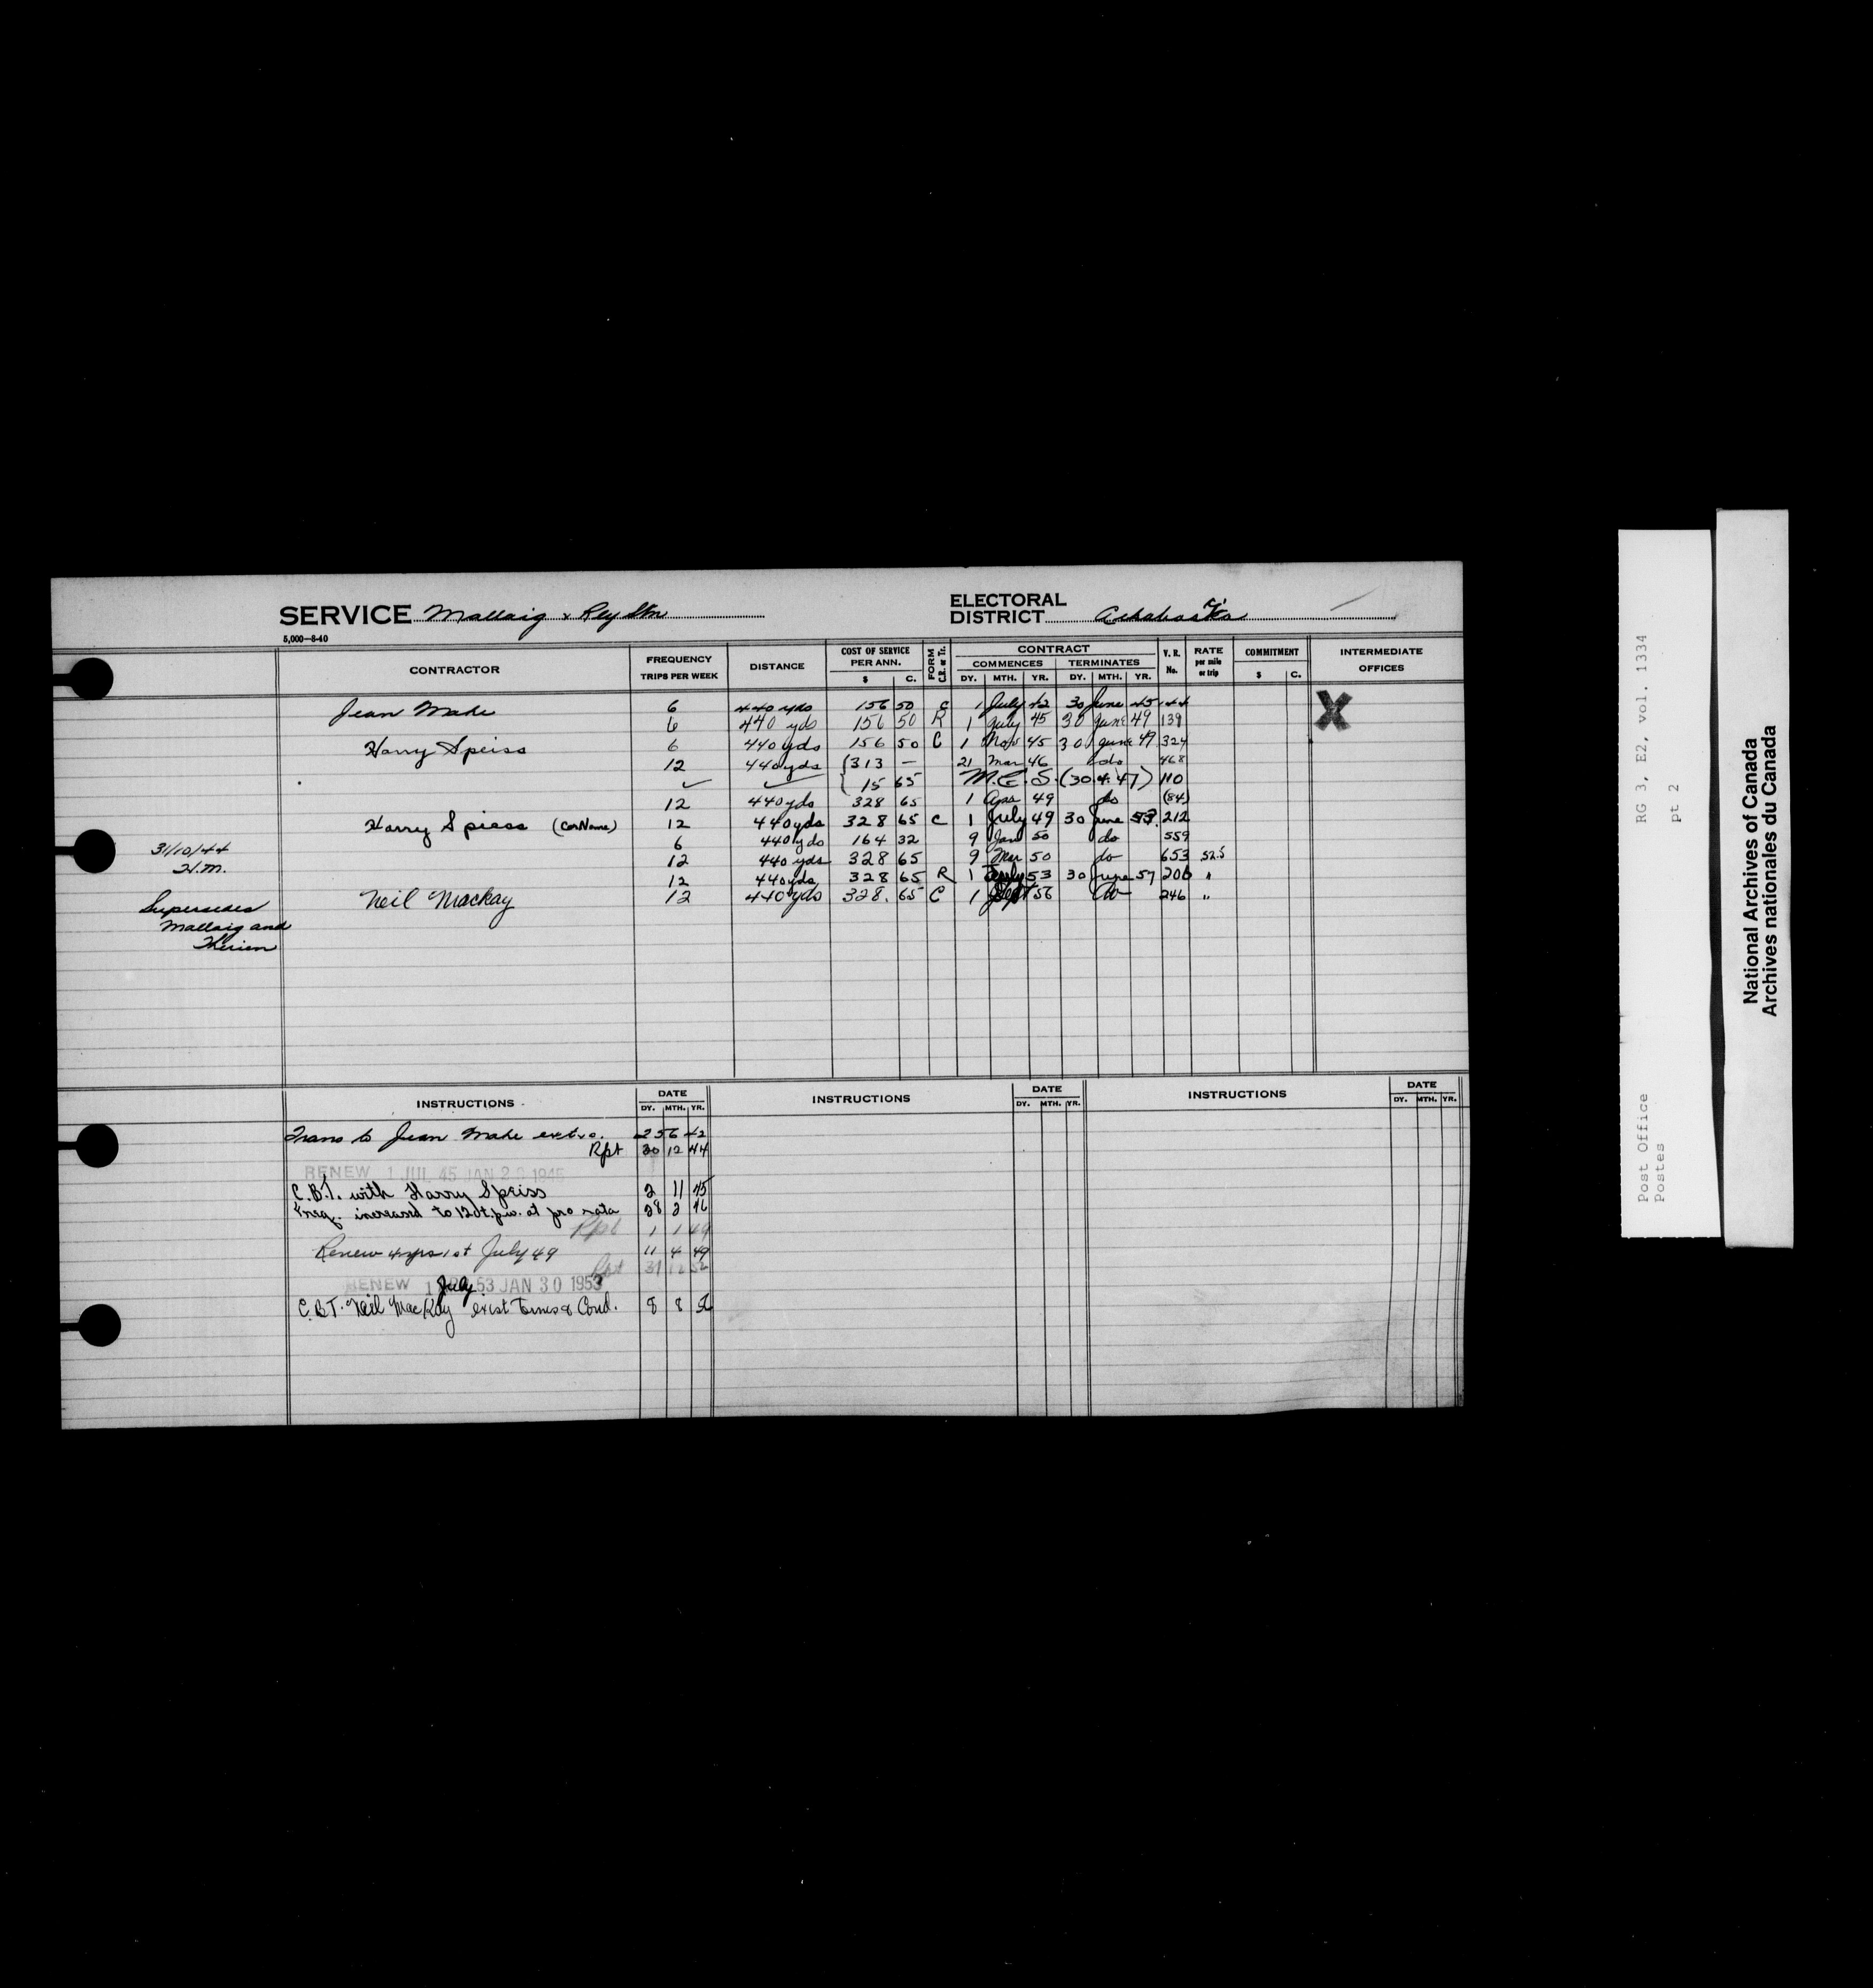 SERVICE Mallaig & Rly Stn
ELECTORAL DISTRICT Athabaska
5,000—8-40
CONTRACTOR FREQUENCY TRIPS PER WEEK DISTANCE COST OF SERVICE PER ANN. $ C. FORM C.R. or Tr. CONTRACT COMMENCES DY. MTH. YR. TERMINATES DY. MTH. YR. V. R. No. RATE per mile or trip COMMITMENT $ C. INTERMEDIATE OFFICES
Jean Mahe 6 440 yds 156 50 C 1 July 42 30 June 45 144 X
6 440 yds 156 50 R 1 July 45 30 June 49 139
Harry Speiss 6 440 yds 156 50 C 1 Nov 45 30 June 49 324
12 440 yds (313 — 21 Mar 46 do 468
✓ ✓ 15 65 M.C.S. (30.4.47) 110
12 440 yds 328 65 1 Apr 49 do (84)
Harry Spiess (Cor Name) 12 440 yds 328 65 C 1 July 49 30 June 53. 212
31/10/44 6 440 yds 164 32 9 Jan 50 do 559
H.M. 12 440 yds 328 65 9 Mar 50 do 653 52.5
12 440 yds 328 65 R 1 July 53 30 June 57 206 "
Supersedes Neil Mackay 12 440 yds 328. 65 C 1 Sept 56 do 246 "
Mallaig and
Therien
INSTRUCTIONS DATE DY. MTH. YR. INSTRUCTIONS DATE DY. MTH. YR. INSTRUCTIONS DATE DY. MTH. YR.
Trans to Jean Mahe 25 6 42
Rpt 30 12 44
RENEW 1 JUL 45 JAN 1945
C.B.T. with Harry Speiss 2 11 45
Freq. increased to 12 t.p.w. at pro rata 28 2 46
Rpt 1 1 49
Renew 4 yrs 1st July 49 11 4 49
Rpt 31 12 52
RENEW 1 July 53 JAN 30 1953
C.B.T. Neil MacKay exist Terms & Cond. 8 8 56
RG 3, E2, vol. 1334
pt 2
Post Office
Postes
National Archives of Canada
Archives nationales du Canada